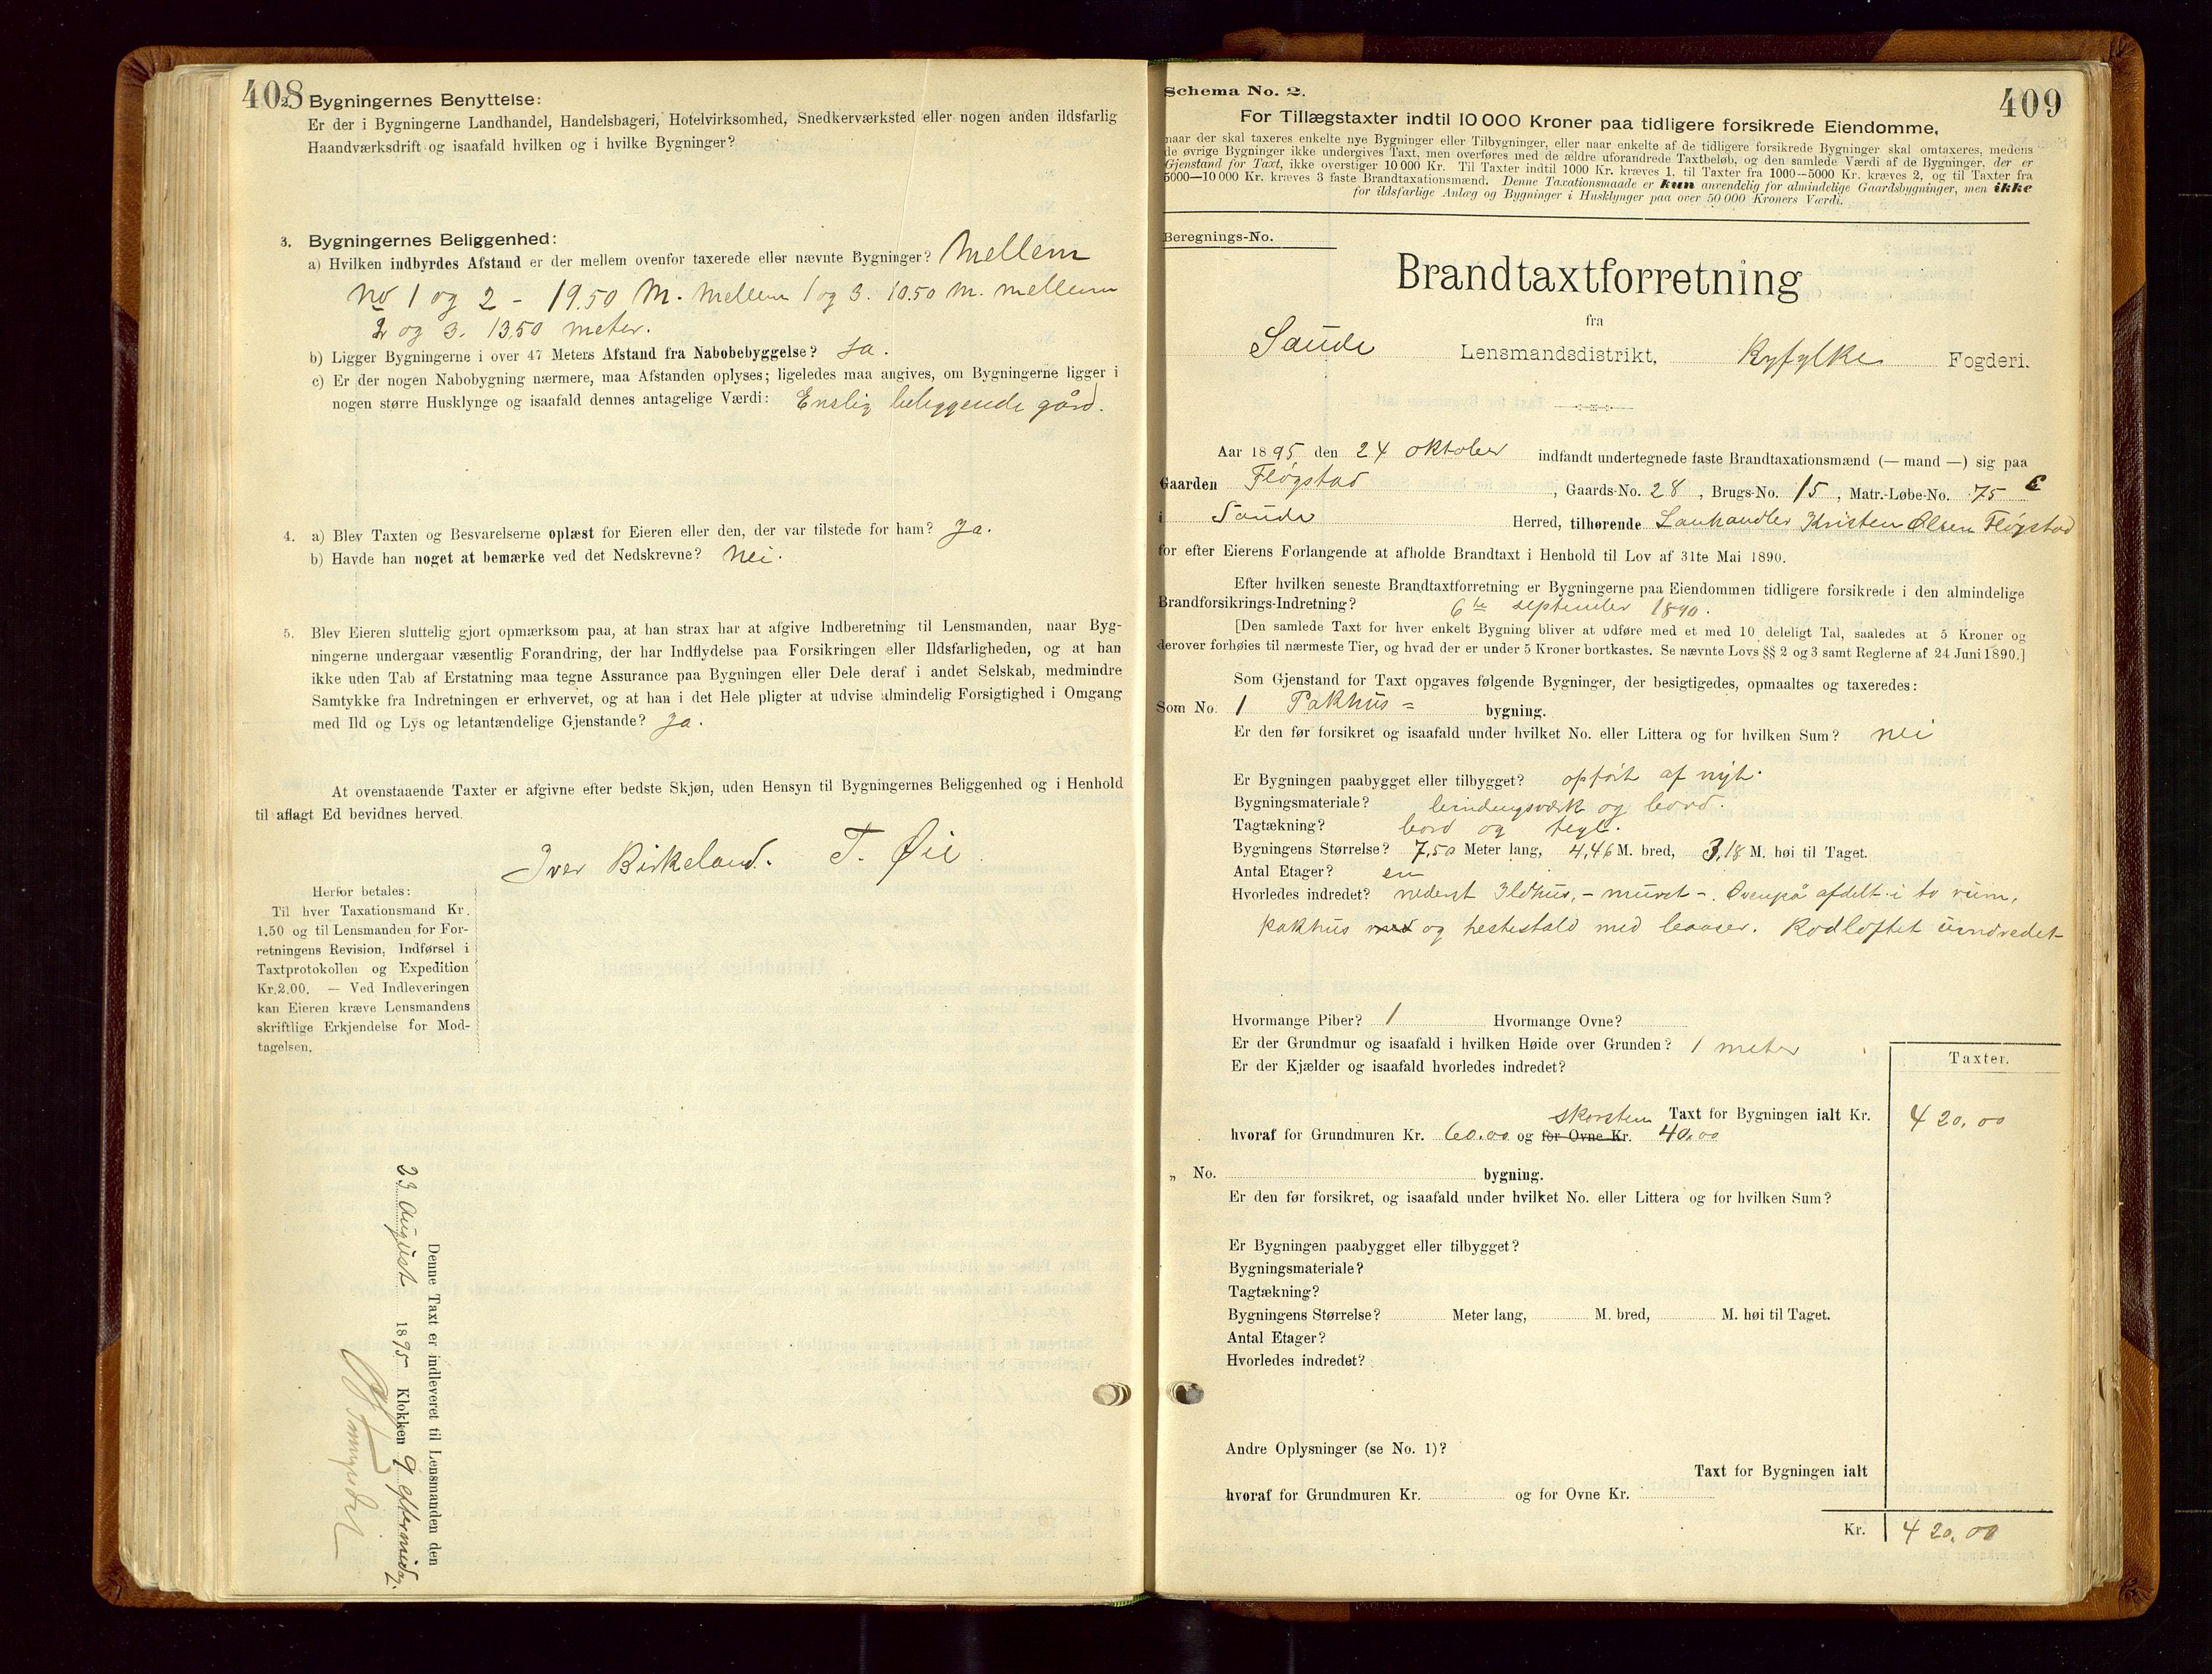 408
2. Bygningernes Benyttelse:
Er der i Bygningerne Landhandel, Handelsbageri, Hotelvirksomhed, Snedkerværksted eller nogen anden ildsfarlig
Haandværksdrift og isaafald hvilken og i hvilke Bygninger?
3. Bygningernes Beliggenhed:
a) Hvilken indbyrdes Afstand er der mellem ovenfor taxerede eller nævnte Bygninger? Mellem
No 1 og 2 - 19.50 M. Mellem 1 og 3. 10.50 M. mellem
2 og 3. 13.50 meter.
b) Ligger Bygningerne i over 47 Meters Afstand fra Nabobebyggelse? Ja.
c) Er der nogen Nabobygning nærmere, maa Afstanden oplyses; ligeledes maa angives, om Bygningerne ligger i
nogen større Husklynge og isaafald dennes antagelige Værdi: Enslig beliggende gård.
4. a) Blev Taxten og Besvarelserne oplæst for Eieren eller den, der var tilstede for ham? Ja.
b) Havde han noget at bemærke ved det Nedskrevne? Nei.
5. Blev Eieren sluttelig gjort opmærksom paa, at han strax har at afgive Indberetning til Lensmanden, naar Byg-
ningerne undergaar væsentlig Forandring, der har Indflydelse paa Forsikringen eller Ildsfarligheden, og at han
ikke uden Tab af Erstatning maa tegne Assurance paa Bygningen eller Dele deraf i andet Selskab, medmindre
Samtykke fra Indretningen er erhvervet, og at han i det Hele pligter at udvise almindelig Forsigtighed i Omgang
med Ild og Lys og letantændelige Gjenstande? Ja.
At ovenstaaende Taxter er afgivne efter bedste Skjøn, uden Hensyn til Bygningernes Beliggenhed og i Henhold
til aflagt Ed bevidnes herved.
Iver Birkeland. T. Øie.
Herfor betales:
Til hver Taxationsmand Kr.
1.50 og til Lensmanden for For-
retningens Revision, Indførsel i
Taxtprotokollen og Expedition
Kr. 2.00. — Ved Indleveringen
kan Eieren kræve Lensmandens
skriftlige Erkjendelse for Mod-
tagelsen.
Denne Taxt er indleveret til Lensmanden den
23 August 1895 Klokken 9 eftermidag.
409
Schema No. 2.
For Tillægstaxter indtil 10 000 Kroner paa tidligere forsikrede Eiendomme,
naar der skal taxeres enkelte nye Bygninger eller Tilbygninger, eller naar enkelte af de tidligere forsikrede Bygninger skal omtaxeres, medens
de øvrige Bygninger ikke undergives Taxt, men overføres med de ældre uforandrede Taxtbeløb, og den samlede Værdi af de Bygninger, der er
Gjenstand for Taxt, ikke overstiger 10 000 Kr. Til Taxter indtil 1000 Kr. kræves 1, til Taxter fra 1000—5000 Kr. kræves 2, og til Taxter fra
5000—10 000 Kr. kræves 3 faste Brandtaxationsmænd. Denne Taxationsmaade er kun anvendelig for almindelige Gaardsbygninger, men ikke
for ildsfarlige Anlæg og Bygninger i Husklynger paa over 50 000 Kroners Værdi.
Beregnings-No.
Brandtaxtforretning
fra
Saude Lensmandsdistrikt, Ryfylke Fogderi.
Aar 1895 den 24 oktober indfandt undertegnede faste Brandtaxationsmænd (— mand —) sig paa
Gaarden Fløgstad, Gaards-No. 28, Brugs-No. 15, Matr.-Løbe-No. 75 c
i Saude Herred, tilhørende Lanhandler Kristen Olsen Fløgstad
for efter Eierens Forlangende at afholde Brandtaxt i Henhold til Lov af 31te Mai 1890.
Efter hvilken seneste Brandtaxtforretning er Bygningerne paa Eiendommen tidligere forsikrede i den almindelige
Brandforsikrings-Indretning? 6te september 1890.
[Den samlede Taxt for hver enkelt Bygning bliver at udføre med et med 10 deleligt Tal, saaledes at 5 Kroner og
derover forhøies til nærmeste Tier, og hvad der er under 5 Kroner bortkastes. Se nævnte Lovs §§ 2 og 3 samt Reglerne af 24 Juni 1890.]
Som Gjenstand for Taxt opgaves følgende Bygninger, der besigtigedes, opmaaltes og taxeredes:
Som No. 1 Pakhus = bygning.
Er den før forsikret og isaafald under hvilket No. eller Littera og for hvilken Sum? nei
Er Bygningen paabygget eller tilbygget? opført af nyt.
Bygningsmateriale? bindingsværk og bord.
Tagtækning? bord og tegl.
Bygningens Størrelse? 7,50 Meter lang, 4,46 M. bred, 3,18 M. høi til Taget.
Antal Etager? en
Hvorledes indredet? nederst Ildhus, - muret -. Ovenpå afdelt i to rum,
pakhus med og hestestald med baaser. Rodloftet uindredet
Hvormange Piber? 1 Hvormange Ovne?
Er der Grundmur og isaafald i hvilken Høide over Grunden? 1 meter
Er der Kjælder og isaafald hvorledes indredet?
Taxter.
skorsten Taxt for Bygningen ialt Kr. 420,00
hvoraf for Grundmuren Kr. 60.00 og for Ovne Kr. 40,00
„ No. bygning.
Er den før forsikret, og isaafald under hvilket No. eller Littera og for hvilken Sum?
Er Bygningen paabygget eller tilbygget?
Bygningsmateriale?
Tagtækning?
Bygningens Størrelse? Meter lang, M. bred, M. høi til Taget.
Antal Etager?
Hvorledes indredet?
Andre Oplysninger (se No. 1)?
Taxt for Bygningen ialt
hvoraf for Grundmuren Kr. og for Ovne Kr.
Kr. 420,00